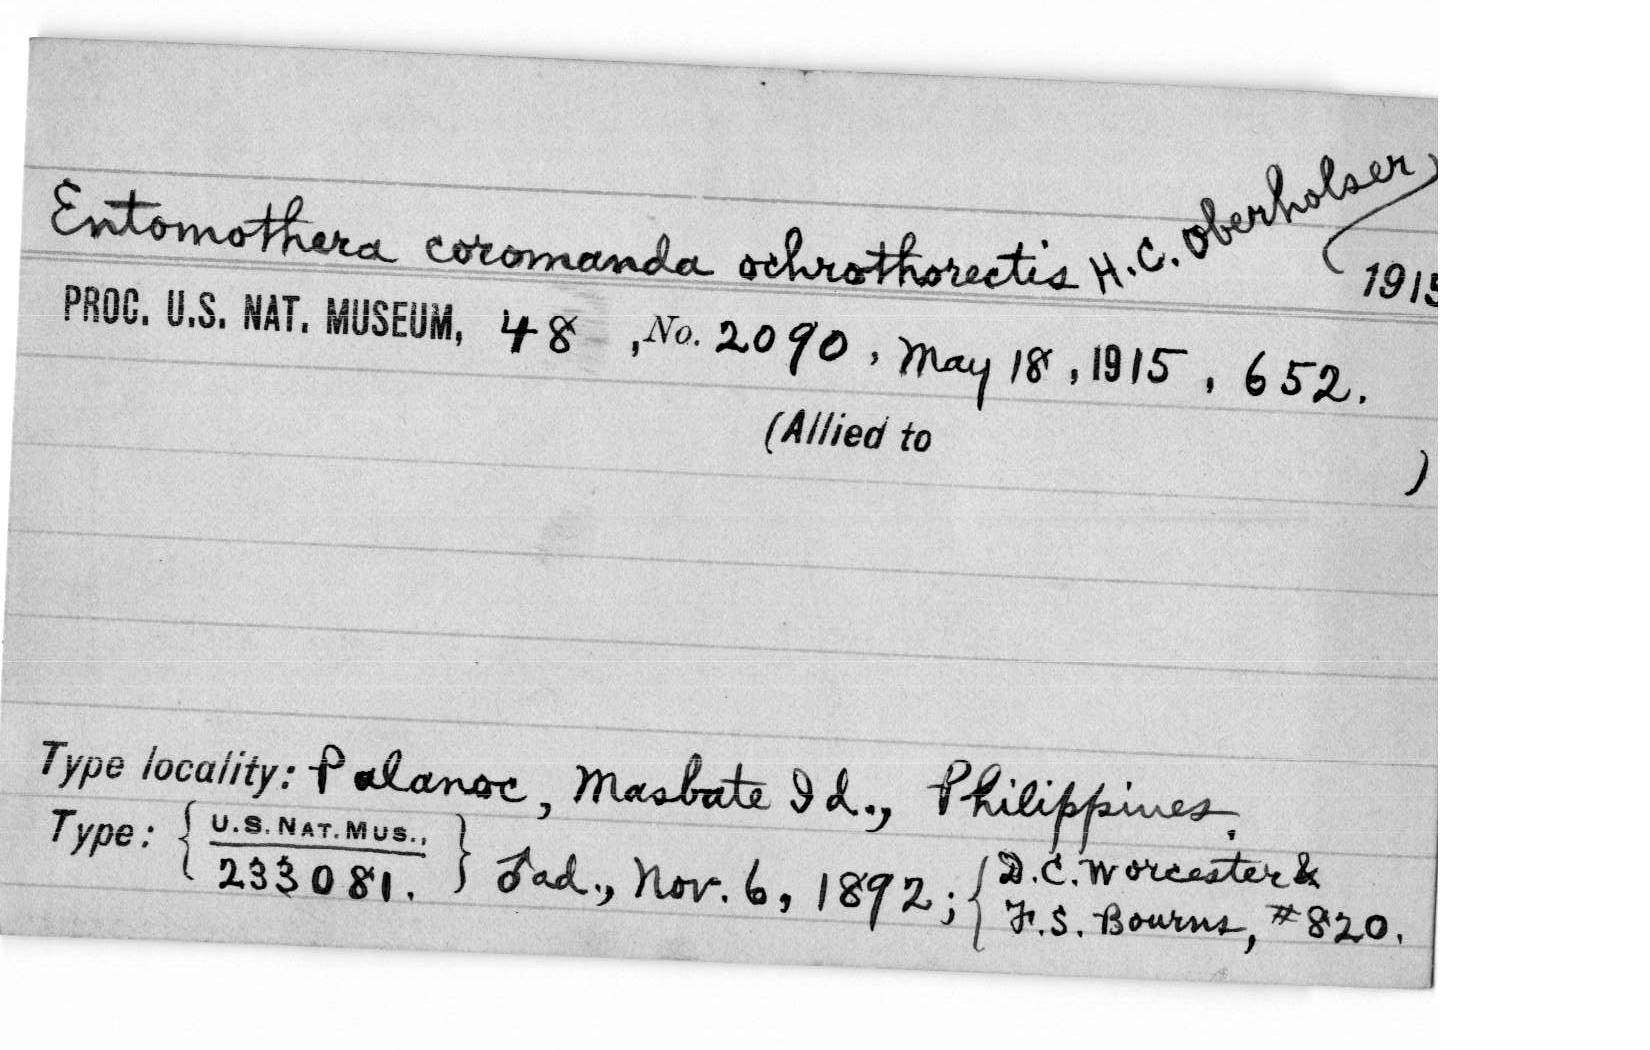 Entomothera coromanda ochrothorectis H. C. Oberholser
(1915)
PROC. U.S. NAT. MUSEUM, 48, No. 2090, May 18, 1915, 652.
(Allied to )
Type locality: Palanoc, Masbate Id., Philippines.
Type: { U.S. NAT. MUS., 233081. } ♂ ad., Nov. 6, 1892; { D. C. Worcester &
F. S. Bourns, #820.